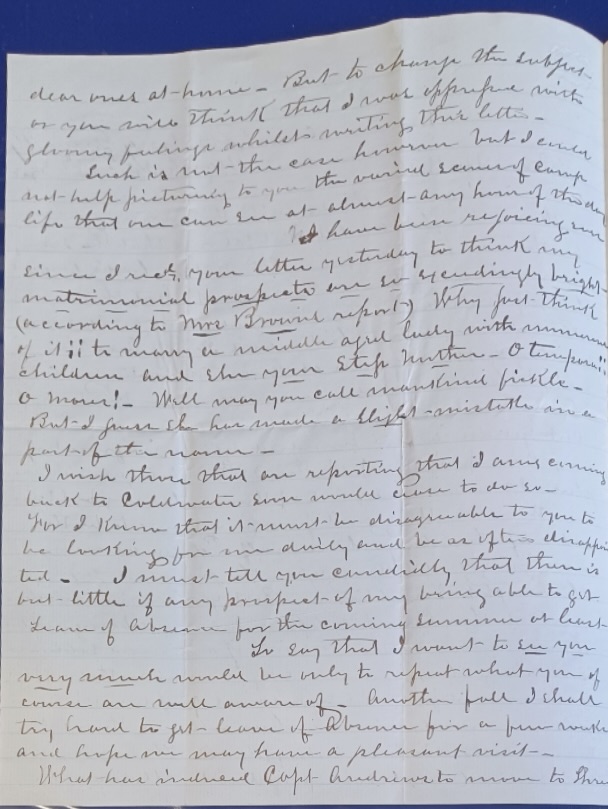 dear ones at home - But to change the subject
or you will think that I was oppressed with
gloomy feelings whilst writing this letter -
Such is not the case however but I could
not help picturing to you the varied scenes of camp
life that one can see at almost any hour of the day
I have been rejoicing ever
since I recd, your letter yesterday to think my
matrimonial prospects are so exceedingly bright -
(according to Mrs Brown's report) Why just think
of it!! to marry a middle aged lady with
children and she your Step Mother - O tempora!!
O Mores! - Well may you call mankind fickle -
But I guess she has made a slight mistake in a
part of the name -
I wish those that are reporting that I am coming
back to Coldwater soon would cease to do so -
For I know that it must be disagreeable to you to
be looking for me daily and be as often disappoin
ted - I must tell you candidly that there is
but little if any prospect of my being able to get
Leave of Absence for the coming summer at least
To say that I want to see you
very much would be only to repeat what you of
course are well aware of - Another fall I shall
try hard to get leave of Absence for a few weeks
and hope we may have a pleasant visit -
What has induced Capt Andrews to move to Thre